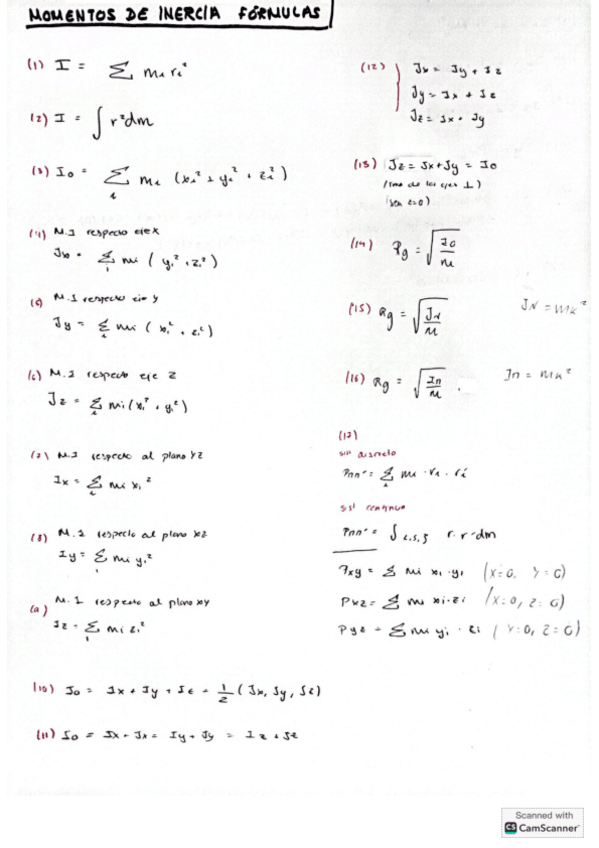 MOMENTOS DE INERCIA FÓRMULAS
(1) I = Σ mi ri²
(2) I = ∫ r² dm
(3) Io = Σi mi (xi² + yi² + zi²)
(4) M.I respecto eje X
Jx = Σi mi (yi² + zi²)
(5) M.I respecto eje y
Jy = Σi mi (xi² + zi²)
(6) M.I respecto eje Z
Jz = Σi mi (xi² + yi²)
(7) M.I respecto al plano YZ
Ix = Σi mi xi²
(8) M.I respecto al plano xz
Iy = Σi mi yi²
(9) M.I respecto al plano xy
Iz = Σi mi zi²
(10) Jo = Ix + Iy + Iz = 1/2 (Jx, Jy, Jz)
(11) Io = Ix + Jx = Iy + Jy = Iz + Jz
(12) Jx = Iy + Iz
Jy = Ix + Iz
Jz = Ix + Iy
(13) Jz = Jx + Jy = Io
de los ejes ⊥)
z=0)
(14) Rg = √(Io/M)
(15) Rg = √(Jx/M) JN = MK²
(16) Rg = √(In/M) . In = MK²
(17)
sist discreto
Pnn' = Σi mi · ri · ri'
sist continuo
Pnn' = ∫L,S,ξ r · r' dm
Pxy = Σ mi xi · yi (X=0, Y=0)
Pxz = Σ mi xi · zi (X=0, Z=0)
Pyz = Σ mi yi · zi (Y=0, Z=0)
Scanned with
CS CamScanner